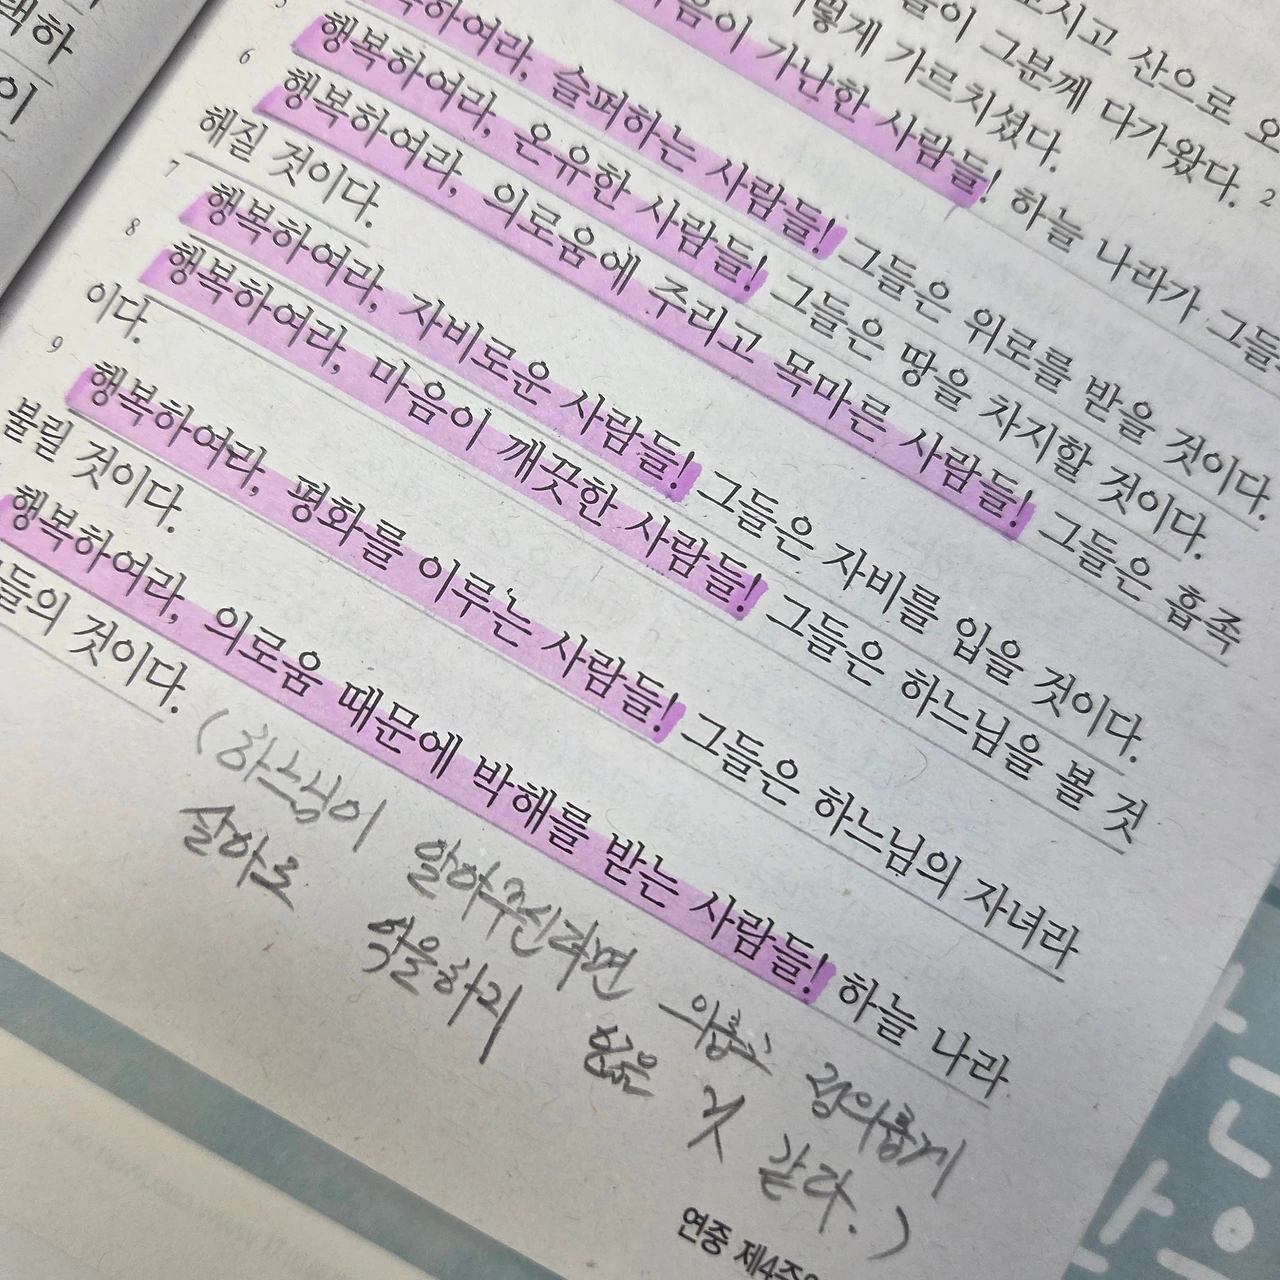 택하
이
모시고 산으로 오
들이 그분께 다가왔다. 2
이렇게 가르치셨다.
마음이 가난한 사람들! 하늘 나라가 그들
5 행복하여라, 슬퍼하는 사람들! 그들은 위로를 받을 것이다.
행복하여라, 온유한 사람들! 그들은 땅을 차지할 것이다.
6 행복하여라, 의로움에 주리고 목마른 사람들! 그들은 흡족
해질 것이다.
7 행복하여라, 자비로운 사람들! 그들은 자비를 입을 것이다.
8 행복하여라, 마음이 깨끗한 사람들! 그들은 하느님을 볼 것
이다.
9 행복하여라, 평화를 이루는 사람들! 그들은 하느님의 자녀라
불릴 것이다.
행복하여라, 의로움 때문에 박해를 받는 사람들! 하늘 나라
들의 것이다.
(하느님이 알아주신다면 의롭고 정의롭게
살아도 억울하지 않을 것 같다.)
연중 제4주